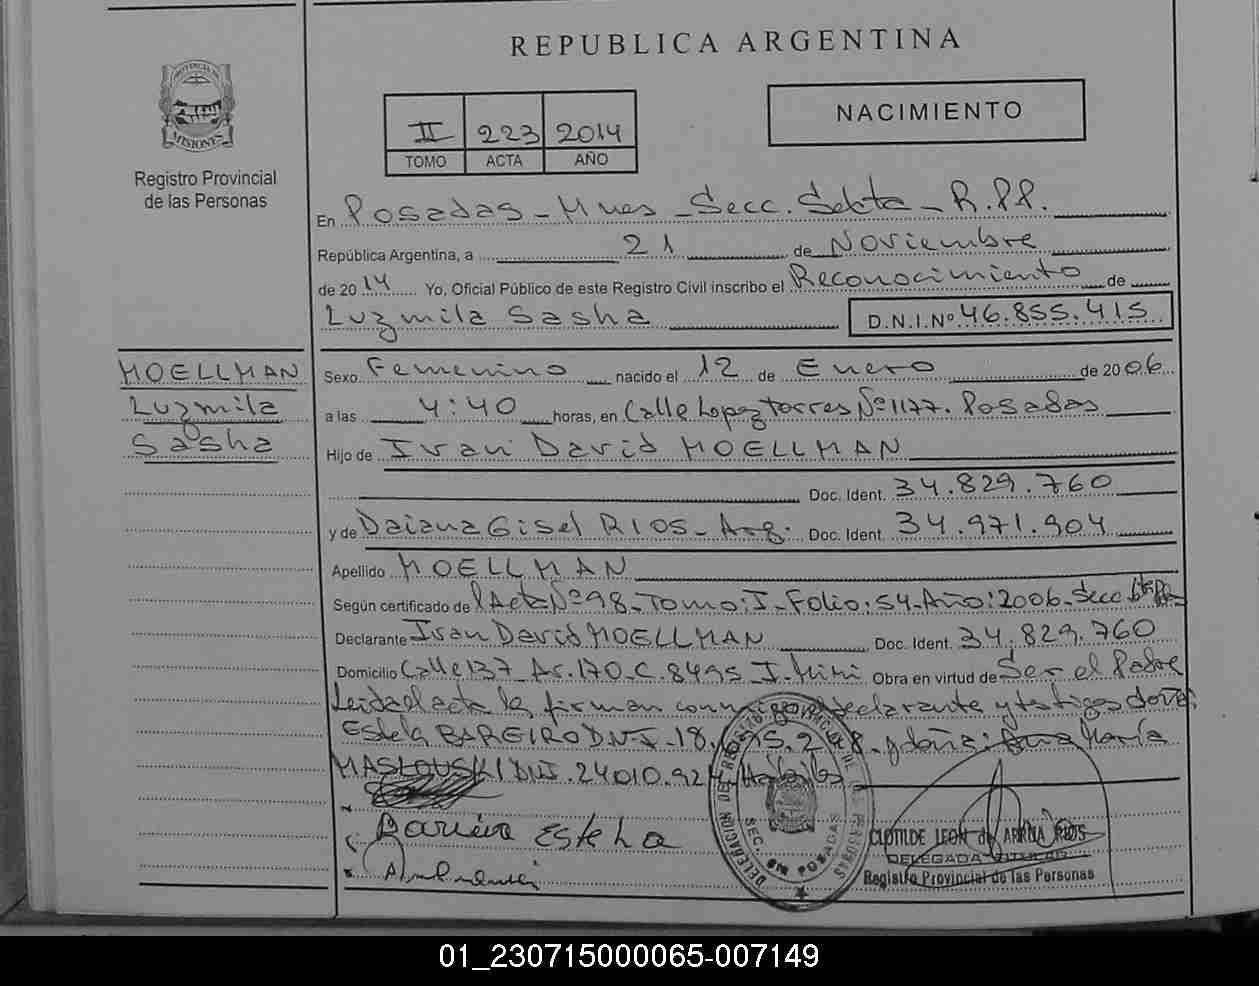 REPUBLICA ARGENTINA
PROVINCIA DE
MISIONES
Registro Provincial
de las Personas
II 223 2014
TOMO ACTA AÑO
NACIMIENTO
En Posadas - Mnes - Secc. Sexta - R.P.P.
República Argentina, a 21 de Noviembre
de 2014 Yo, Oficial Público de este Registro Civil inscribo el Reconocimiento de
Luzmila Sasha D.N.I.Nº 46.855.415
MOELLMAN
Luzmila
Sasha
Sexo Femenino nacido el 12 de Enero de 2006
a las 4:40 horas, en Calle Lopez torres Nº 1177. Posadas
Hijo de Ivan David MOELLMAN
Doc. Ident. 34.829.760
y de Daiana Gisel RIOS - Arg. Doc. Ident. 34.971.904
Apellido MOELLMAN
Según certificado de Acta Nº 98 - Tomo: I - Folio: 54 - Año: 2006 - Secc. 6ta
Declarante Ivan David MOELLMAN Doc. Ident. 34.829.760
Domicilio Calle 137 - As. 170 - C. 8495 - I. Mini Obra en virtud de Ser el Padre
Leida el acta la firman conmigo declarante y testigos doña:
Estela BAREIRO D.N.I. 18. y doña: Ana María
MASLOUSKI DNI. 24010.92
Bareiro Estela
DELEGACION DEL REGISTRO PROVINCIAL DE LAS PERSONAS
SEC. 6TA POSADAS
CLOTILDE LEON de ARRUA RIOS
DELEGADA TITULAR
Registro Provincial de las Personas
01_230715000065-007149